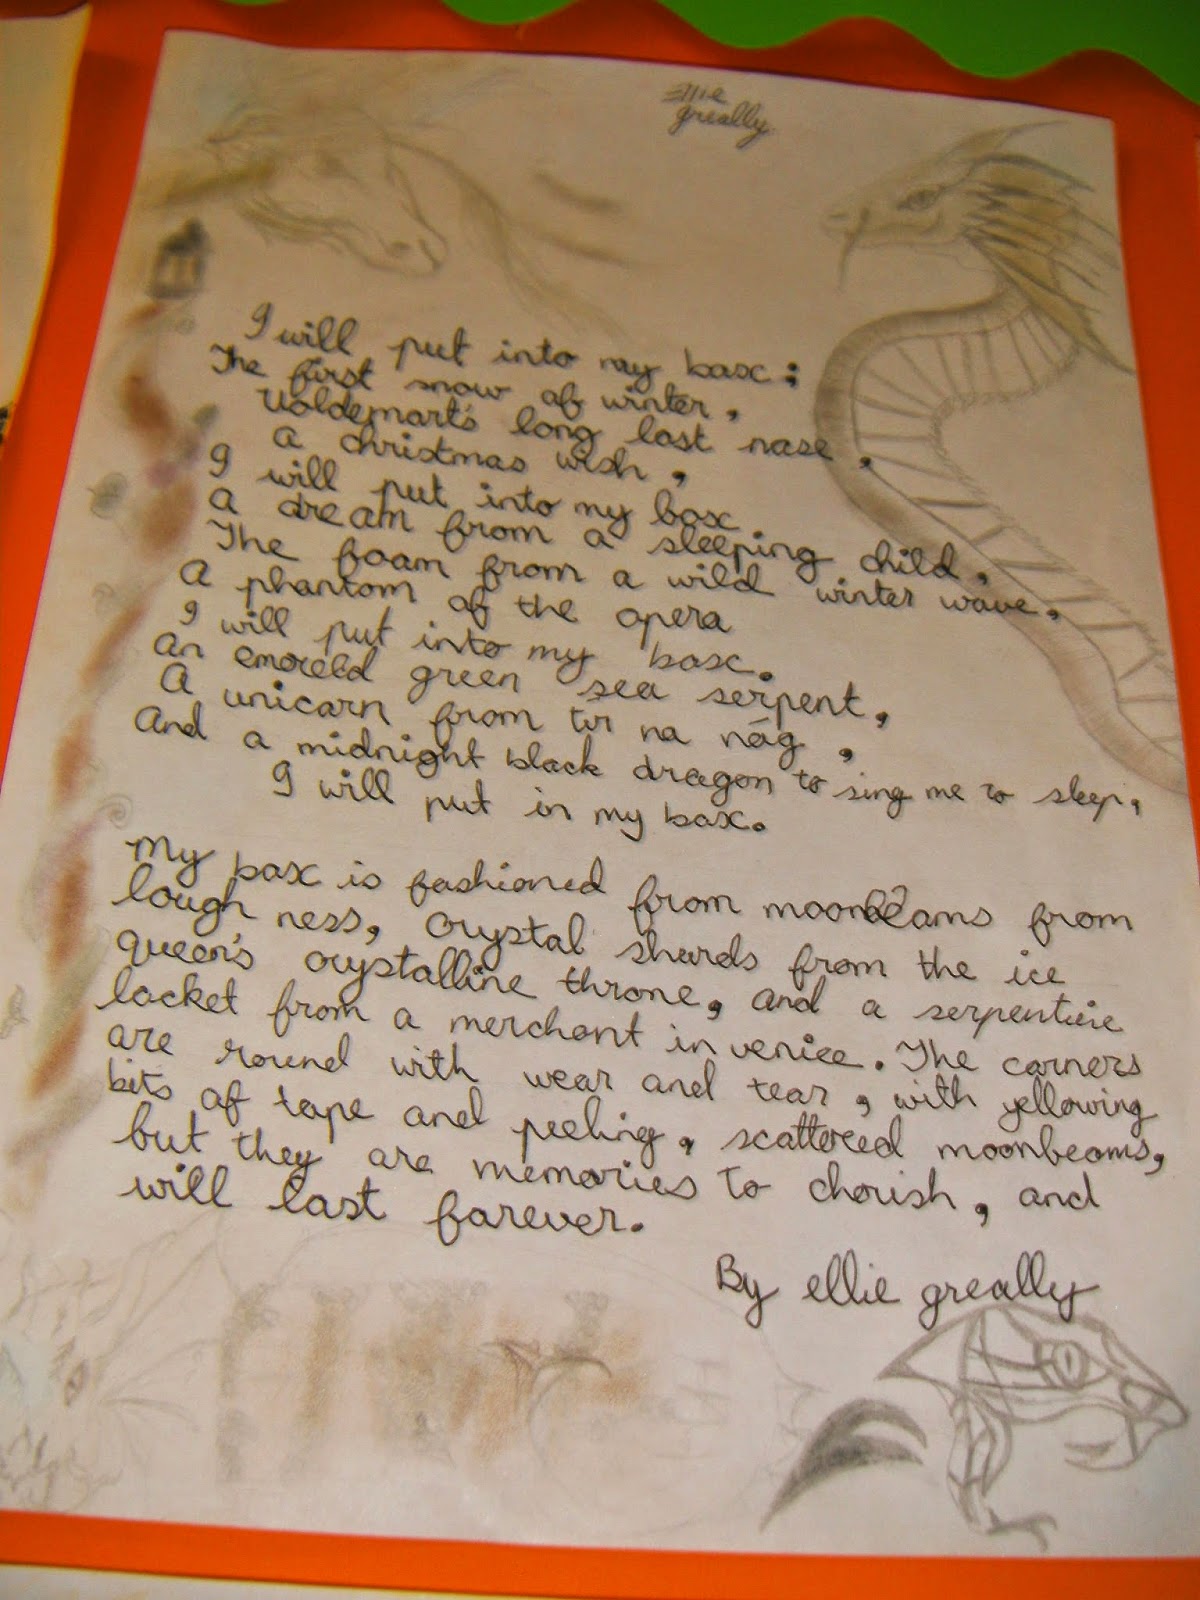 Ellie
greally
I will put into my box:
The first snow of winter,
Voldemort's long lost nose,
A christmas wish,
I will put into my box
A dream from a sleeping child,
The foam from a wild winter wave,
A phantom of the opera
I will put into my box.
An emoreld green sea serpent,
A unicorn from tir na nóg,
And a midnight black dragon to sing me to sleep,
I will put in my box.
My box is fashioned from moonbeams from
lough ness, crystal shards from the ice
queen's crystalline throne, and a serpentine
locket from a merchant in venice. The corners
are round with wear and tear, with yellowing
bits of tape and peeling, scattered moonbeams,
but they are memories to cherish, and
will last forever.
By ellie greally